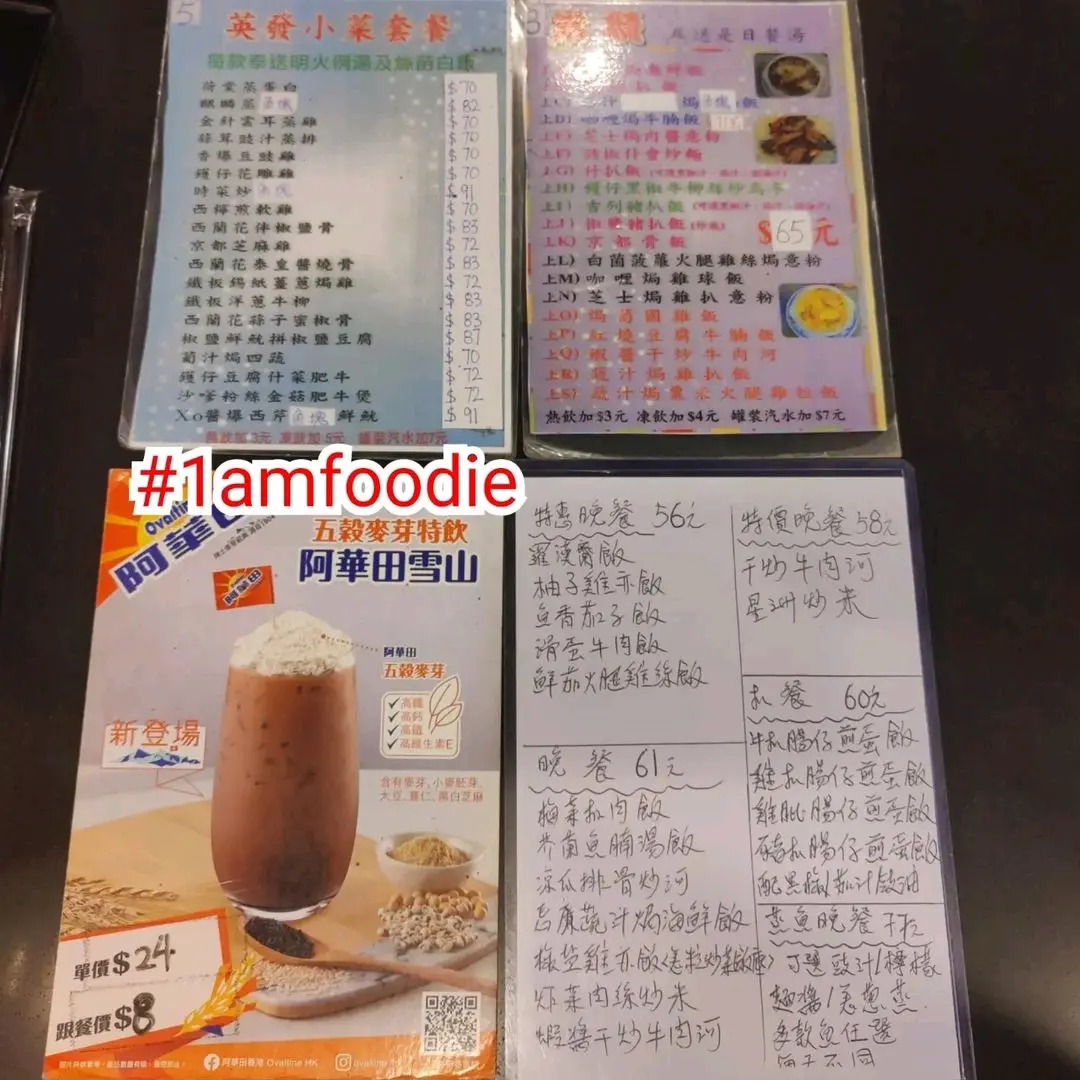 5
英發小菜套餐
每款奉送明火例湯及絲苗白飯
荷堂蒸蛋白 $70
麒麟蒸魚塊 $82
金針雲耳蒸雞 $70
蒜茸豉汁蒸排 $70
香爆豆豉雞 $70
鑊仔花雕雞 $70
時菜炒魚塊 $91
西檸煎軟雞 $70
西蘭花伴椒鹽骨 $83
京都芝麻雞 $72
西蘭花泰皇醬燒骨 $83
鐵板錫紙薑蔥焗雞 $72
鐵板洋蔥牛柳 $83
西蘭花蒜子蜜椒骨 $83
椒鹽鮮魷拼椒鹽豆腐 $87
葡汁焗四蔬 $70
鑊仔豆腐什菜肥牛 $72
沙嗲粉絲金菇肥牛煲 $72
Xo醬爆西芹魚塊鮮魷 $91
熱飲加3元 凍飲加5元 罐裝汽水加7元
是日餐湯
上D) 咖喱焗牛腩飯
上E) 芝士焗肉醬意粉
上G) 什扒飯
上I) 吉列豬扒飯
上J) 椒鹽豬扒飯
上K) 京都骨飯
$65元
上L) 白菌菠蘿火腿雞絲焗意粉
上M) 咖喱焗雞球飯
上N) 芝士焗雞扒意粉
上O) 焗葡國雞飯
上P) 紅燒豆腐牛腩飯
上Q) 蝦醬干炒牛肉河
上R) 汁焗雞扒飯
上S) 汁焗粟米火腿雞粒飯
熱飲加$3元 凍飲加$4元 罐裝汽水加$7元
#1amfoodie
Ovaltine
阿華田
五穀麥芽特飲
阿華田雪山
阿華田
阿華田
五穀麥芽
高纖
高鈣
高鐵
高維生素E
新登場
含有麥芽、小麥胚芽、
大豆、薏仁、黑白芝麻
單價 $24
跟餐價 $8
阿華田香港 Ovaltine HK
特惠晚餐 56元
羅漢齋飯
柚子雞亦飯
魚香茄子飯
滑蛋牛肉飯
鮮茄火腿雞絲飯
特價晚餐 58元
干炒牛肉河
星洲炒米
扒餐 60元
牛扒腸仔煎蛋飯
雞扒腸仔煎蛋飯
雞肶腸仔煎蛋飯
豬扒腸仔煎蛋飯
配黑椒/茄汁/豉油
晚餐 61元
梅菜扣肉飯
芥蘭魚腩湯飯
涼瓜排骨炒河
忌廉蔬汁焗海鮮飯
炸菜肉絲炒米
蝦醬干炒牛肉河
蒸魚晚餐
可選豉汁/檸檬
麵醬/羌蔥蒸
多款魚任選